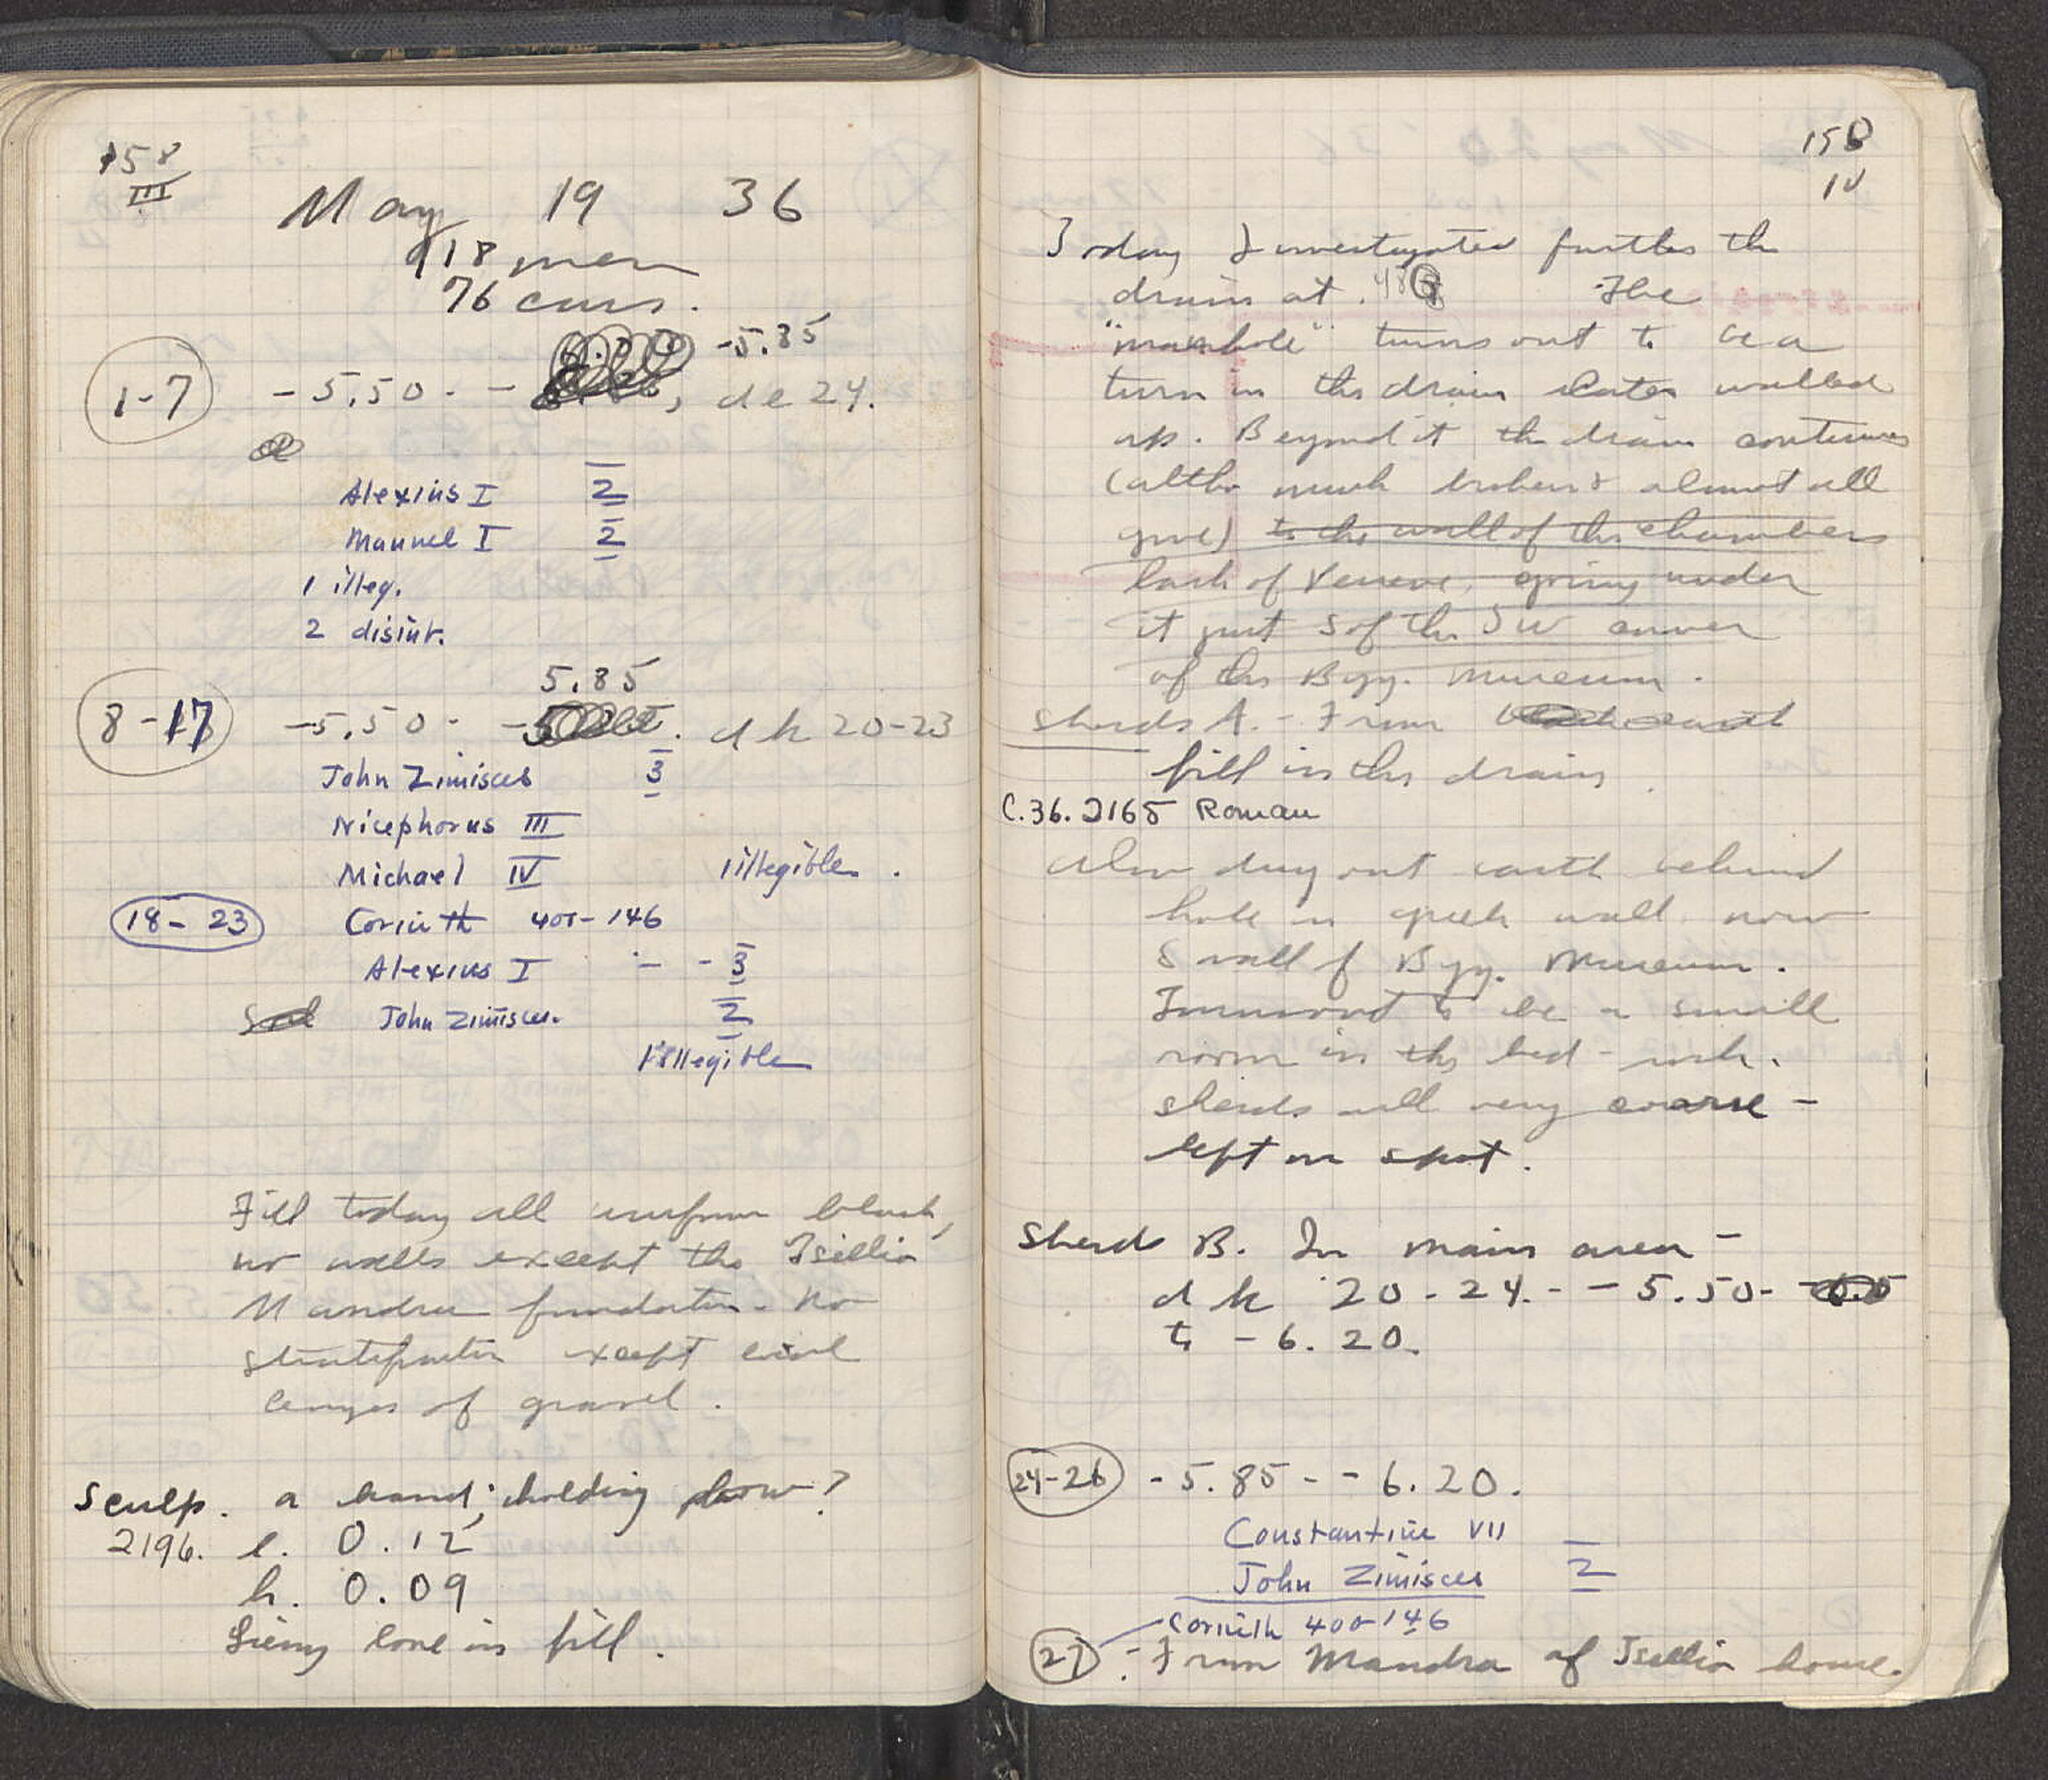 158
III
May 19 36
18 men
76 cars.
-5.85
1-7 -5.50 - - , de 24.
Alexius I 2
Manuel I 2
1 illeg.
2 disint.
5.85
8-17 -5.50 - - . dk 20-23
John Zimisces 3
Nicephorus III
Michael IV 1 illegible.
18-23 Corinth 400-146
Alexius I - - 3
John Zimisces. 2
1 illegible
Fill today all uniform black,
no walls except the Tsellio
Mandra foundation. No
stratification except
lenses of gravel.
Sculp. a hand; holding ?
2196. l. 0.12
h. 0.09
lying loose in fill.
158
IV
Today I investigated further the
drain at. The
"manhole" turns out to be a
turn in the drain later walled
up. Beyond it the drain continues
(altho much broken & almost all
gone) to the wall of the chambers
back of , going under
it just S of the SW corner
of the Byz. Museum.
Sherds A. - From black earth
fill in the drain.
C.36.2165 Roman
Also dug out earth behind
hole in greek wall now
S wall of Byz. Museum.
to be a small
room in the bed-rock.
sherds all very coarse -
left on spot.
Sherds B. In main area -
dk 20-24. - - 5.50 -
to -6.20.
24-26 -5.85 - - 6.20.
Constantine VII
John Zimisces 2
Corinth 400-146
27 : From Mandra of Tsellio house.